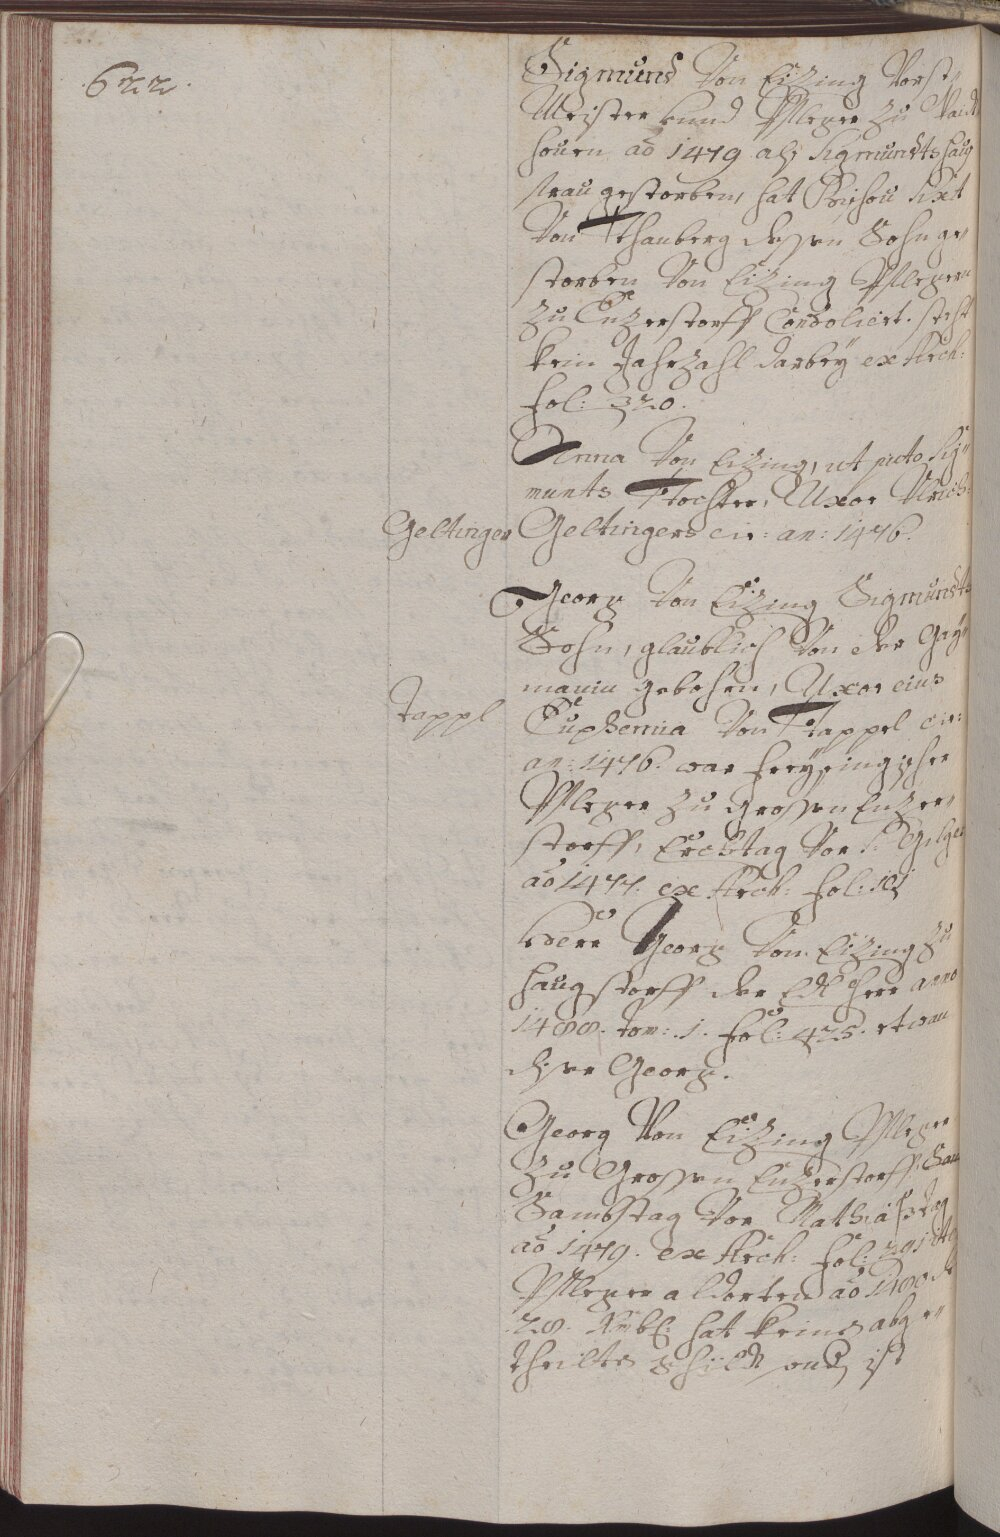 622.
Sigmund Von Eizing Vorst„
Meister unnd Pfleger zu Waid
houen aō 1479 alß Sigmundts hauß
frau gestorben, hat Bischou Sixt
Von Thanberg dessen Sohn ge„
storben Von Eizing Pflegern
zu Enzerstorff Condoliert. steht
kein Jahrzahl darbeÿ ex Arch:
fol: 320.
Anna Von Eizing, ut puto Sig„
munts Tochter, Uxor Ulrich
Geltinger
Geltingers cir: an: 1476.
Georg Von Eizing Sigmundts
Sohn, glaublich Von der Gaÿ„
manin gebohren, Uxor eius
Tappl
Euphemia Von Tappel cir:
an: 1476. war freÿsingischer
Pfleger zu Grossen Enzer„
storff, Erchtag Vor S. Gilgen
aō 1477. ex Arch: fol:
Herr Georg Von Eizing zu
Haugstorff der Edl Herr anno
1488. tom: 1. fol: 425. etwan
diser Georg.
Georg Von Eizing Pfleger
zu Grossen Enzerstorff
Sambstag Vor Mathiaß Tag
aō 1479. ex Arch: fol: 291
Pfleger aldorten aō 1480
28. hat keins abge„
theilts schildt und ist